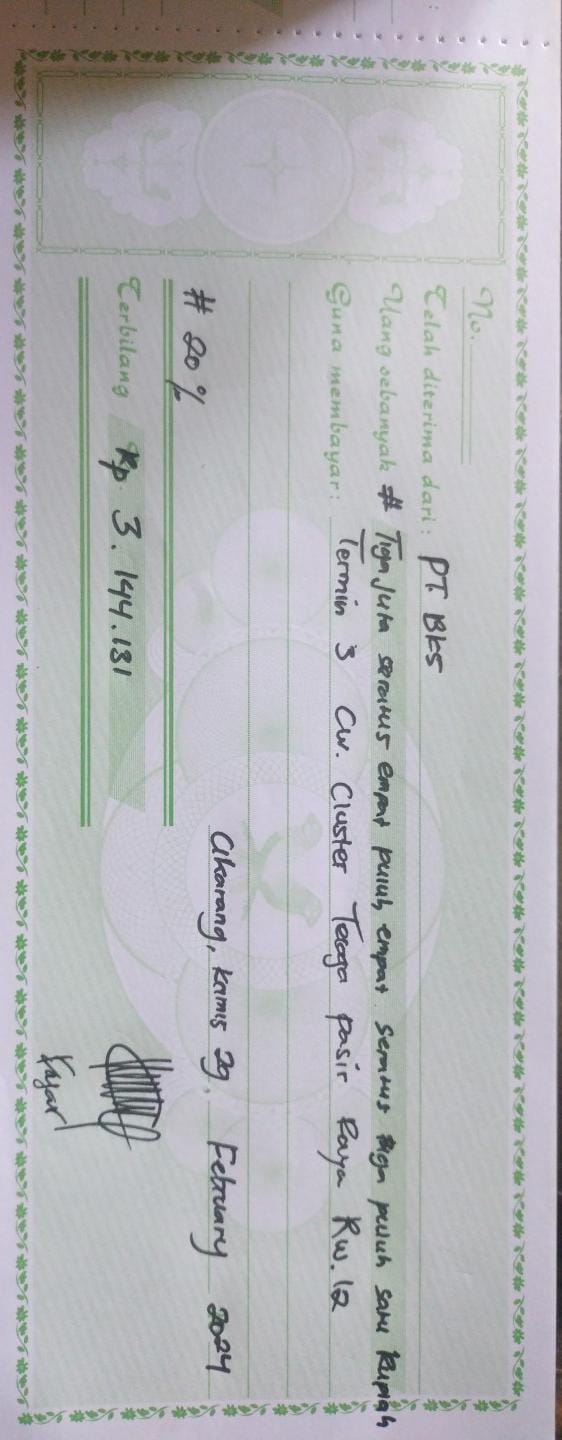 No.
Telah diterima dari : PT BKS
Uang sebanyak # Tiga juta seratus empat puluh empat seratus tiga puluh satu Rupiah
Guna membayar : Termin 3 Cw. Cluster Telaga pasir Raya Rw. 12
# 20 %
Cikarang, Kamis 29, February 2024
Terbilang Rp. 3.144.131